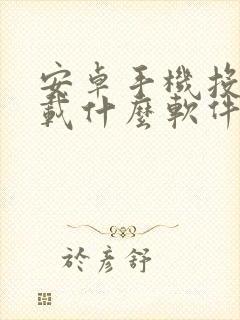 安卓手機投
載什麼軟件
於彥舒